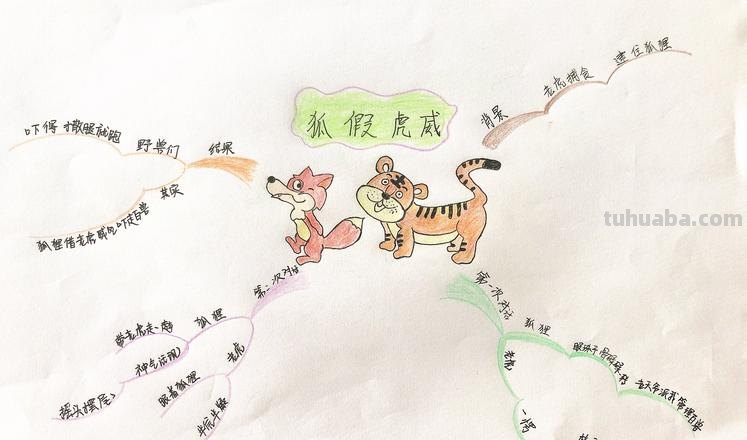 狐假虎威
背景
老虎捕食
逮住狐狸
第一次对话
狐狸
眼珠子骨碌碌一转
老天爷派我管理百兽
老虎
一愣
第二次对话
狐狸
带老虎走一趟
神气活现
摇头摆尾
老虎
跟着狐狸
半信半疑
结果
野兽们
吓得撒腿就跑
其实
狐狸借老虎威风吓走百兽
tuhuaba.com